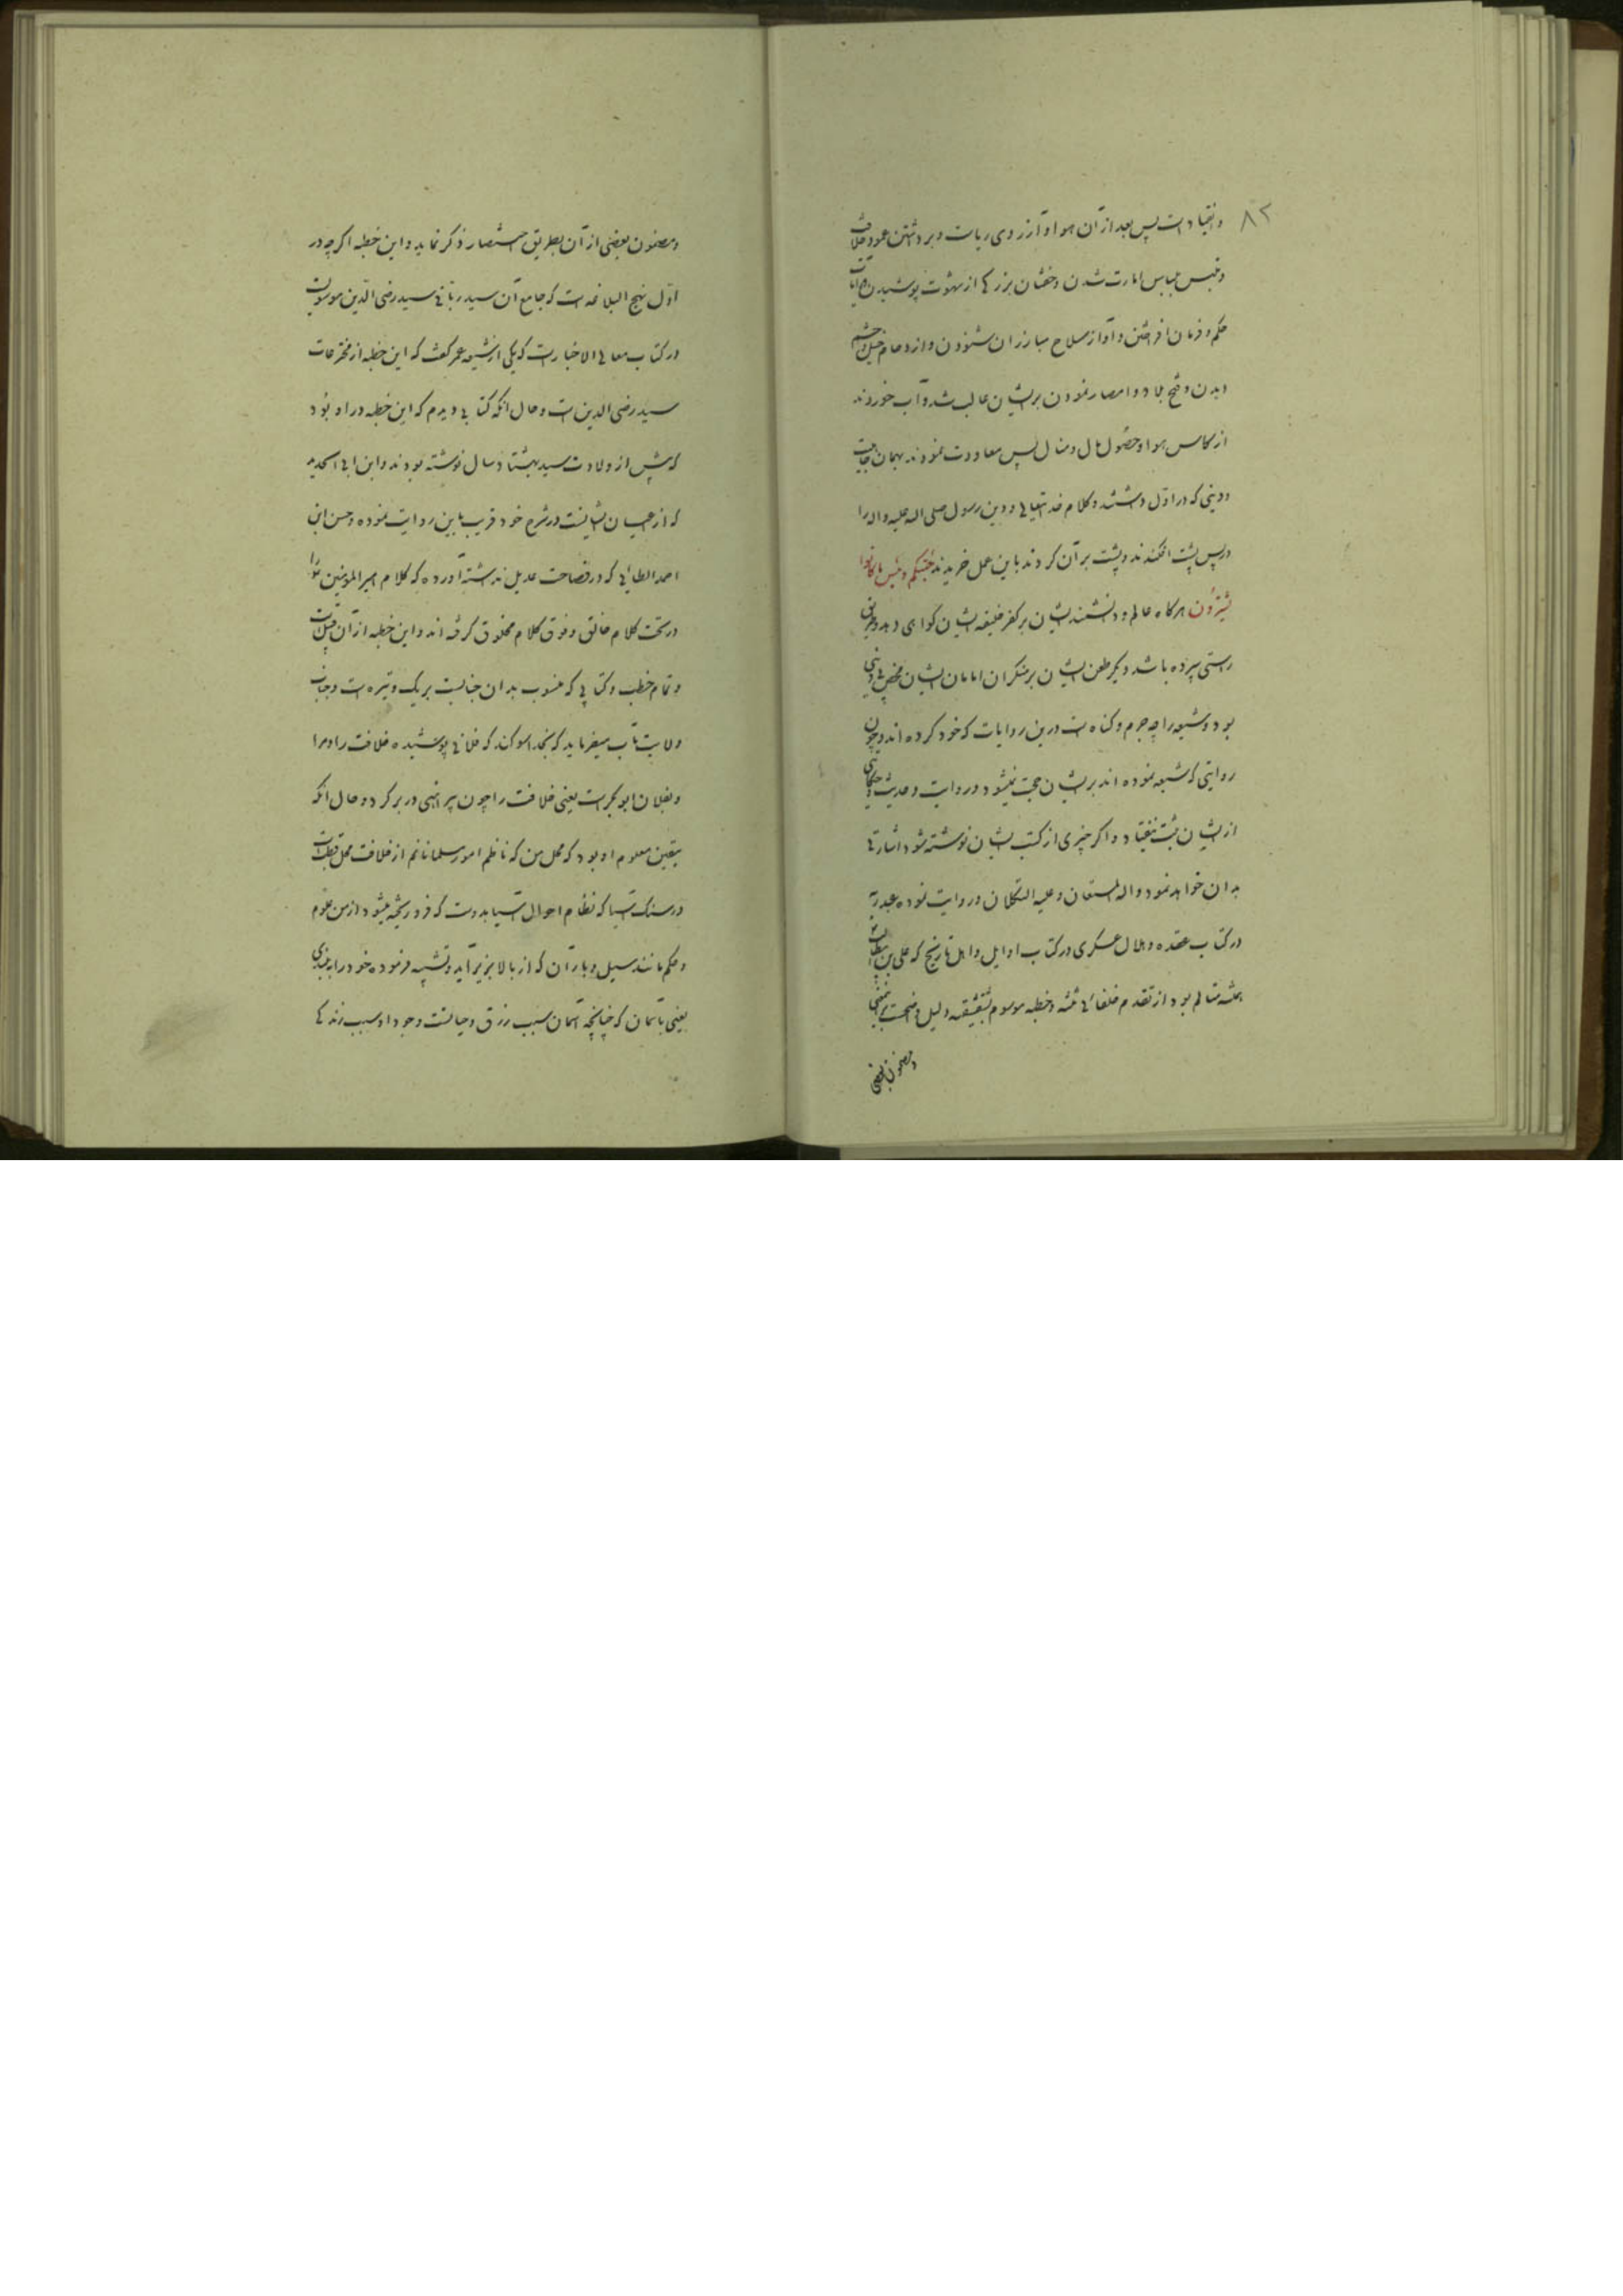 ۸۲
و انقیاد است پس بعد از آن هوا و آرزوی ریاست و برداشتن عمود خلافت
و متلبس بلباس امارت شدن و خفقان بزرگی از شهوت پوشیدن و رایات
حکم و فرمان افراختن و آواز سلاح مبارزان شنودن و ازدحام خیل و حشم
دیدن و فتح بلاد و امصار نمودن بر ایشان غالب شد و آب خوردند
از کاس هوا و حصول مال و منال پس معاودت نمودند بهمان جاهلیت
و دینی که در اول داشتند و کلام خدایتعالی و دین رسول صلی الله علیه و اله را
در پس پشت افکندند و پشت بر آن کردند باین عمل خریدند خستیکم و بئس ما کانوا
یشترون هرگاه عالم و دانشمند ایشان بر کفر خلیفه ایشان گواهی دهد و طریق
راستی سپرده باشد دیگر طعن ایشان بر منکران امامان ایشان محض بی دینی
بود و شیعه را چه جرم و گناه است درین روایات که خود کرده اند و چون
روایتی که شیعه نموده اند بر ایشان حجت نمیشود و روایت و حدیث و حکایتی
از ایشان ثبت نیفتاد و اگر چیزی از کتب ایشان نوشته شود اشارتی
بدان خواهد نمود والله المستعان و علیه التکلان و روایت نموده عبد ربه
در کتاب عقده و هلال عسکری در کتاب اوایل و اهل تاریخ که علی بن ابیطالب
همیشه متألم بود از تقدم خلفای ثلثه و خطبه موسوم بشقشقیه دلیل واضحست بر نفی
و مضمون بعضی
و مضمون بعضی از آن بطریق اختصار ذکر نماید و این خطبه اگرچه در
اول نهج البلاغه است که جامع آن سید ربانی سید رضی الدین موسویست
در کتاب معانی الاخبار است که یکی از شیعه عمر گفت که این خطبه از مخترعات
سید رضی الدین است و حال آنکه کتابی دیدم که این خطبه در او بود
که پیش از ولادت سید بهشتاد سال نوشته بودند و ابن ابی الحدید
که از اعیان ایشانست در شرح خود قریب باین روایت نموده و حسن ابن
احمد الطایی که در فصاحت عدیل نداشته آورده که کلام امیر المومنین را
در تحت کلام خالق و فوق کلام مخلوق گرفته اند و این خطبه از آن قبیل است
و تمام خطب و کتابی که منسوب بدان جنابست بر یک وتیره است و جناب
ولایت مآب میفرماید که بخدا سوگند که فلانی پوشیده خلافت را و مراد
و بفلان ابوبکر است یعنی خلافت را چون پیراهنی در بر کرد و حال آنکه
بیقین معلوم او بود که محل من که ناظم امور مسلمانانم از خلافت محل قطب است
در سنگ آسیا که نظام احوال آسیا بدوست که فرو ریخته میشود از من علوم
و حکم مانند سیل و باران که از بالا بزیر آید و تشبیه فرموده خود را به بلندی
یعنی بآسمان که چنانچه آسمان سبب رزق و حیاتست وجود او سبب زندگی